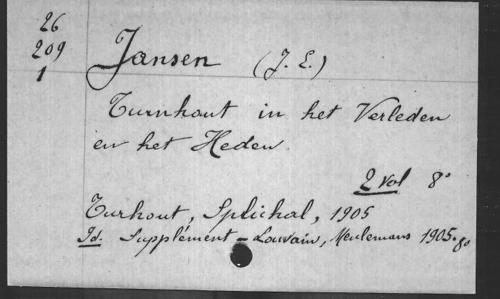 26
209
1
Jansen (J. E.)
Turnhout in het Verleden
en het Heden.
2 vol 8°
Turhout, Splichal, 1905
Id. Supplément - Louvain, Meulemans 1905. 8°